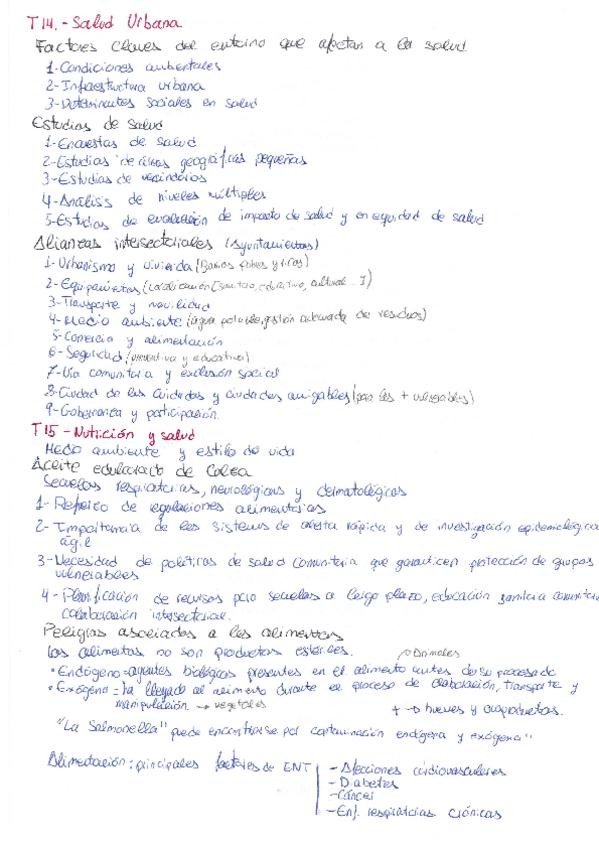 T14.- Salud Urbana
Factores claves del entorno que afectan a la salud
1-Condiciones ambientales
2-Infraestructura urbana
3-Determinantes sociales en salud
Estudios de salud
1-Encuestas de salud
2-Estudios de áreas geográficas pequeñas
3-Estudios de vecindarios
4-Análisis de niveles múltiples
5-Estudios de evaluación de impacto de salud y en equidad de salud
Alianzas intersectoriales (Ayuntamientos)
1-Urbanismo y vivienda (Barrios pobres y ricos)
2-Equipamientos (Localización [sanitario, educativo, cultural...])
3-Transporte y movilidad
4-Medio ambiente (agua potable, gestión adecuada de residuos)
5-Comercio y alimentación
6-Seguridad (preventiva y educativa)
7-Vía comunitaria y exclusión social
8-Ciudad de los cuidados y ciudades amigables (para los + vulnerables)
9-Gobernanza y participación.
T15-Nutrición y salud
Medio ambiente y estilo de vida
Aceite de Colza
Secuelas respiratorias, neurológicas y dermatológicas
1-Refuerzo de regulaciones alimentarias
2-Importancia de los sistemas de alerta rápida y de investigación epidemiológica
ágil
3-Necesidad de políticas de salud comunitaria que garanticen protección de grupos
vulnerables
4-Planificación de recursos para secuelas a largo plazo, educación sanitaria comunitaria
colaboración intersectorial.
Peligros asociados a los alimentos
Los alimentos no son productos estériles.
→ Animales
• Endógeno = agentes biológicos presentes en el alimento antes de su procesado
• Exógeno = ha llegado al alimento durante el proceso de elaboración, transporte y
manipulación → vegetales
+ → huevos y ovoproductos.
"La Salmonella" puede encontrarse por contaminación endógena y exógena"
Alimentación: principales factores de ENT
- Afecciones cardiovasculares
- Diabetes
- Cáncer
- Enf. respiratorias crónicas